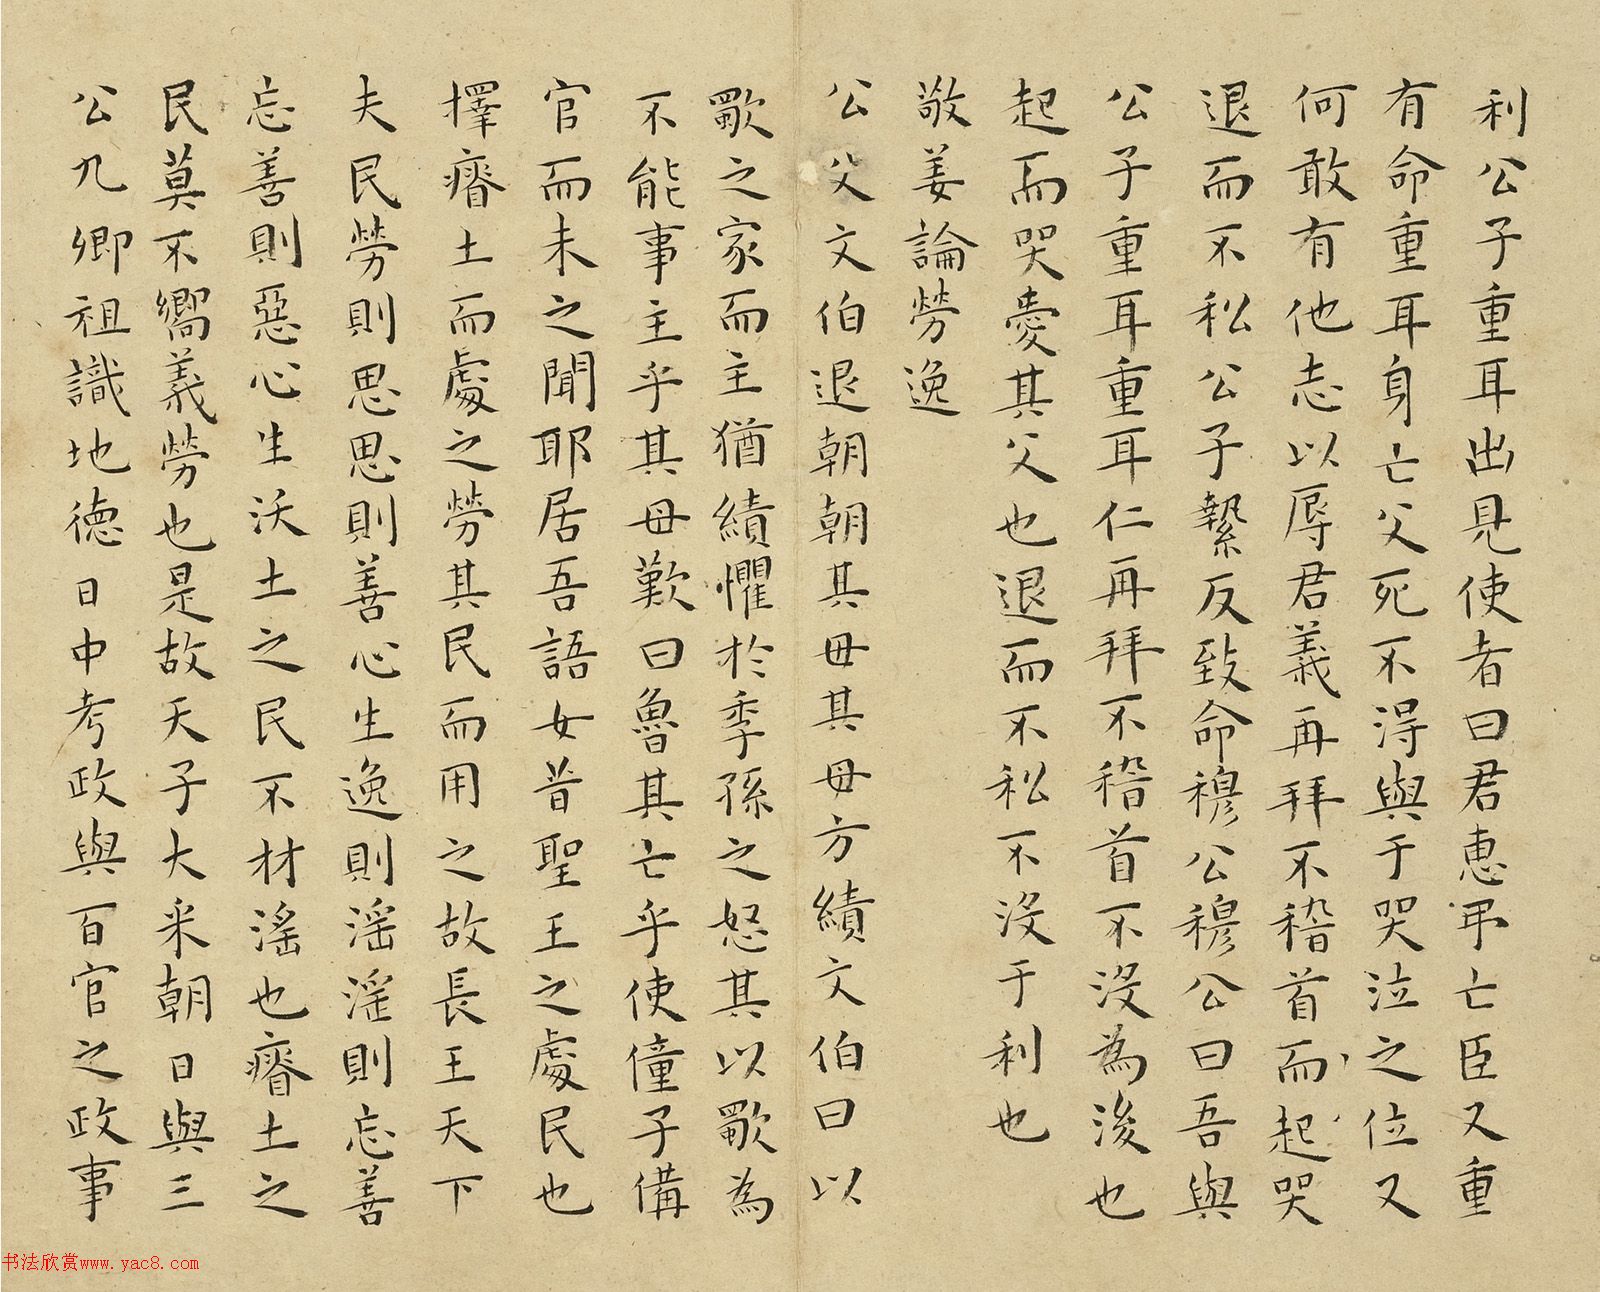 利公子重耳出見使者曰君惠弔亡臣又重
有命重耳身亡父死不得與于哭泣之位又
何敢有他志以辱君義再拜不稽首而起哭
退而不私公子縶反致命穆公穆公曰吾與
公子重耳重耳仁再拜不稽首不沒為後也
起而哭愛其父也退而不私不沒于利也
敬姜論勞逸
公父文伯退朝朝其母其母方績文伯曰以
歜之家而主猶績懼於季孫之怒其以歜為
不能事主乎其母歎曰魯其亡乎使僮子備
官而未之聞耶居吾語女昔聖王之處民也
擇瘠土而處之勞其民而用之故長王天下
夫民勞則思思則善心生逸則淫淫則忘善
忘善則惡心生沃土之民不材淫也瘠土之
民莫不嚮義勞也是故天子大采朝日與三
公九卿祖識地德日中考政與百官之政事
书法欣赏www.yac8.com